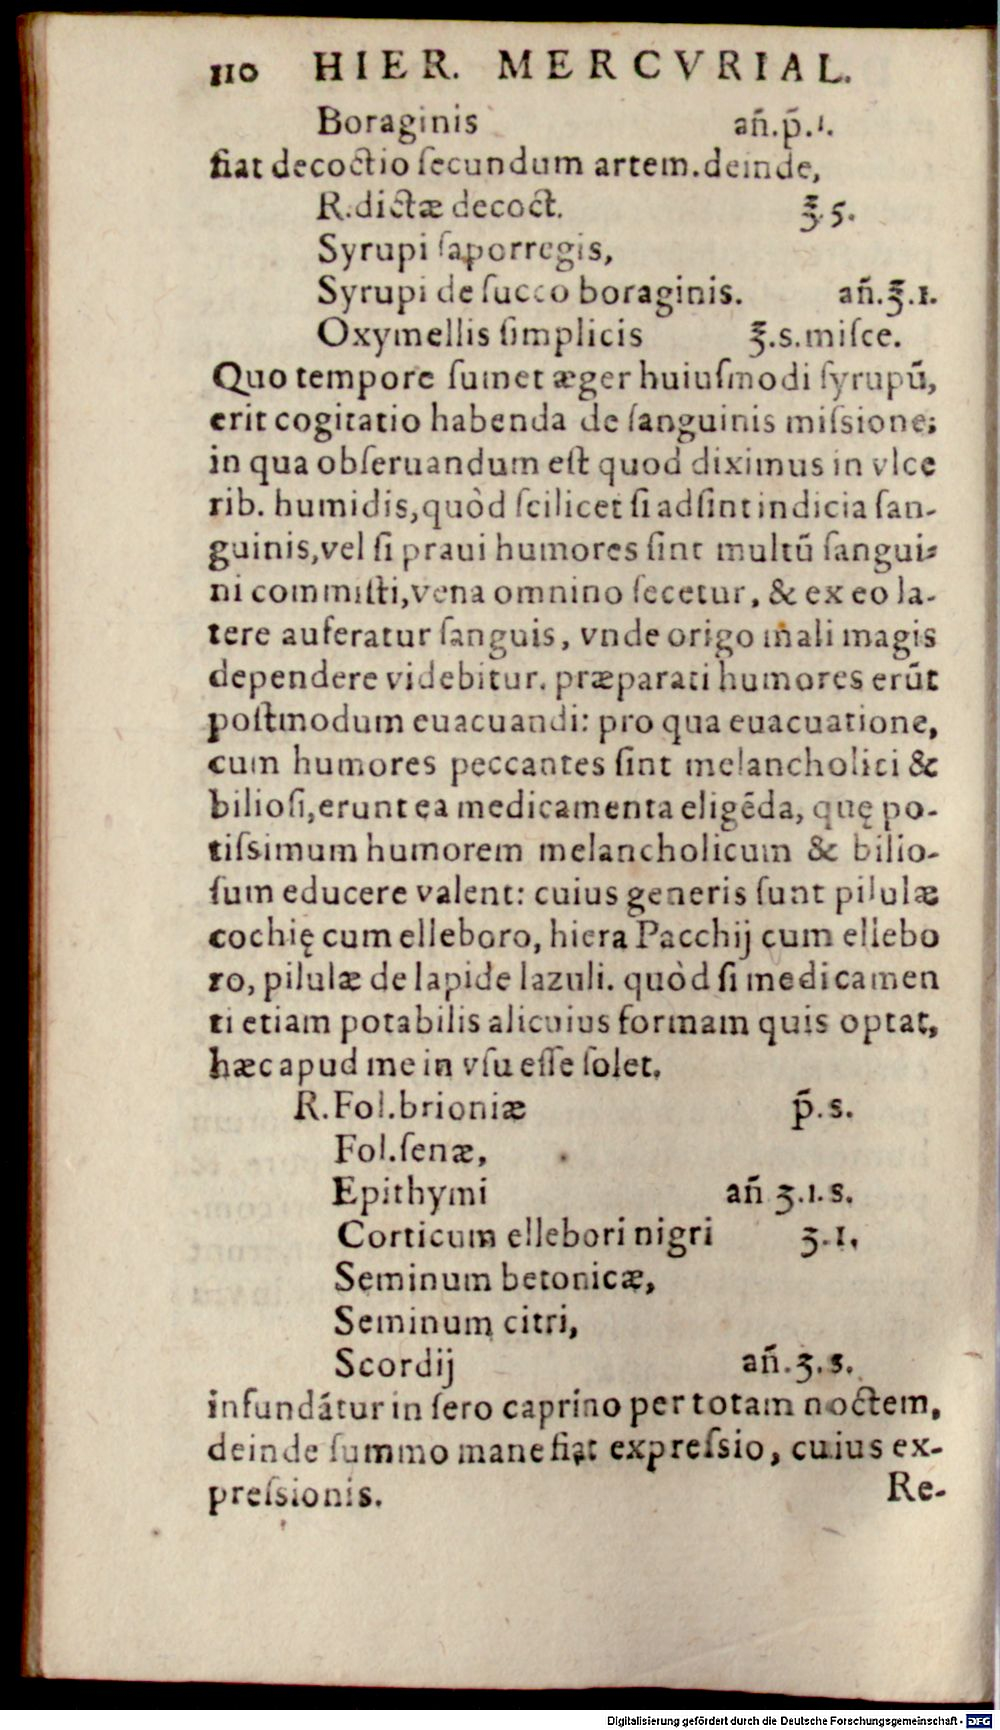 110 HIER. MERCVRIAL.
Boraginis añ.p̃.1.
fiat decoctio ſecundum artem.deinde,
R.dictæ decoct. ℥.5.
Syrupi ſaporregis,
Syrupi de ſucco boraginis. añ.℥.1.
Oxymellis ſimplicis ℥.s.miſce.
Quo tempore ſumet æger huiuſmodi ſyrupū,
erit cogitatio habenda de ſanguinis miſsione;
in qua obſeruandum eſt quod diximus in vlce
rib. humidis,quòd ſcilicet ſi adſint indicia ſan-
guinis,vel ſi praui humores ſint multū ſangui-
ni commiſti,vena omnino ſecetur, & ex eo la-
tere auferatur ſanguis, vnde origo mali magis
dependere videbitur. præparati humores erūt
poſtmodum euacuandi: pro qua euacuatione,
cum humores peccantes ſint melancholici &
bilioſi,erunt ea medicamenta eligēda, quę po-
tiſsimum humorem melancholicum & bilio-
ſum educere valent: cuius generis ſunt pilulæ
cochię cum elleboro, hiera Pacchij cum ellebo
ro, pilulæ de lapide lazuli. quòd ſi medicamen
ti etiam potabilis alicuius formam quis optat,
hæc apud me in vſu eſſe ſolet.
R.Fol.brioniæ p̃.s.
Fol.ſenæ,
Epithymi añ ʒ.1.s.
Corticum ellebori nigri ʒ.1.
Seminum betonicæ,
Seminum citri,
Scordij añ.ʒ.s.
infundātur in ſero caprino per totam noctem,
deinde ſummo mane fiat expreſsio, cuius ex-
preſsionis. Re-
Digitalisierung gefördert durch die Deutsche Forschungsgemeinschaft - DFG